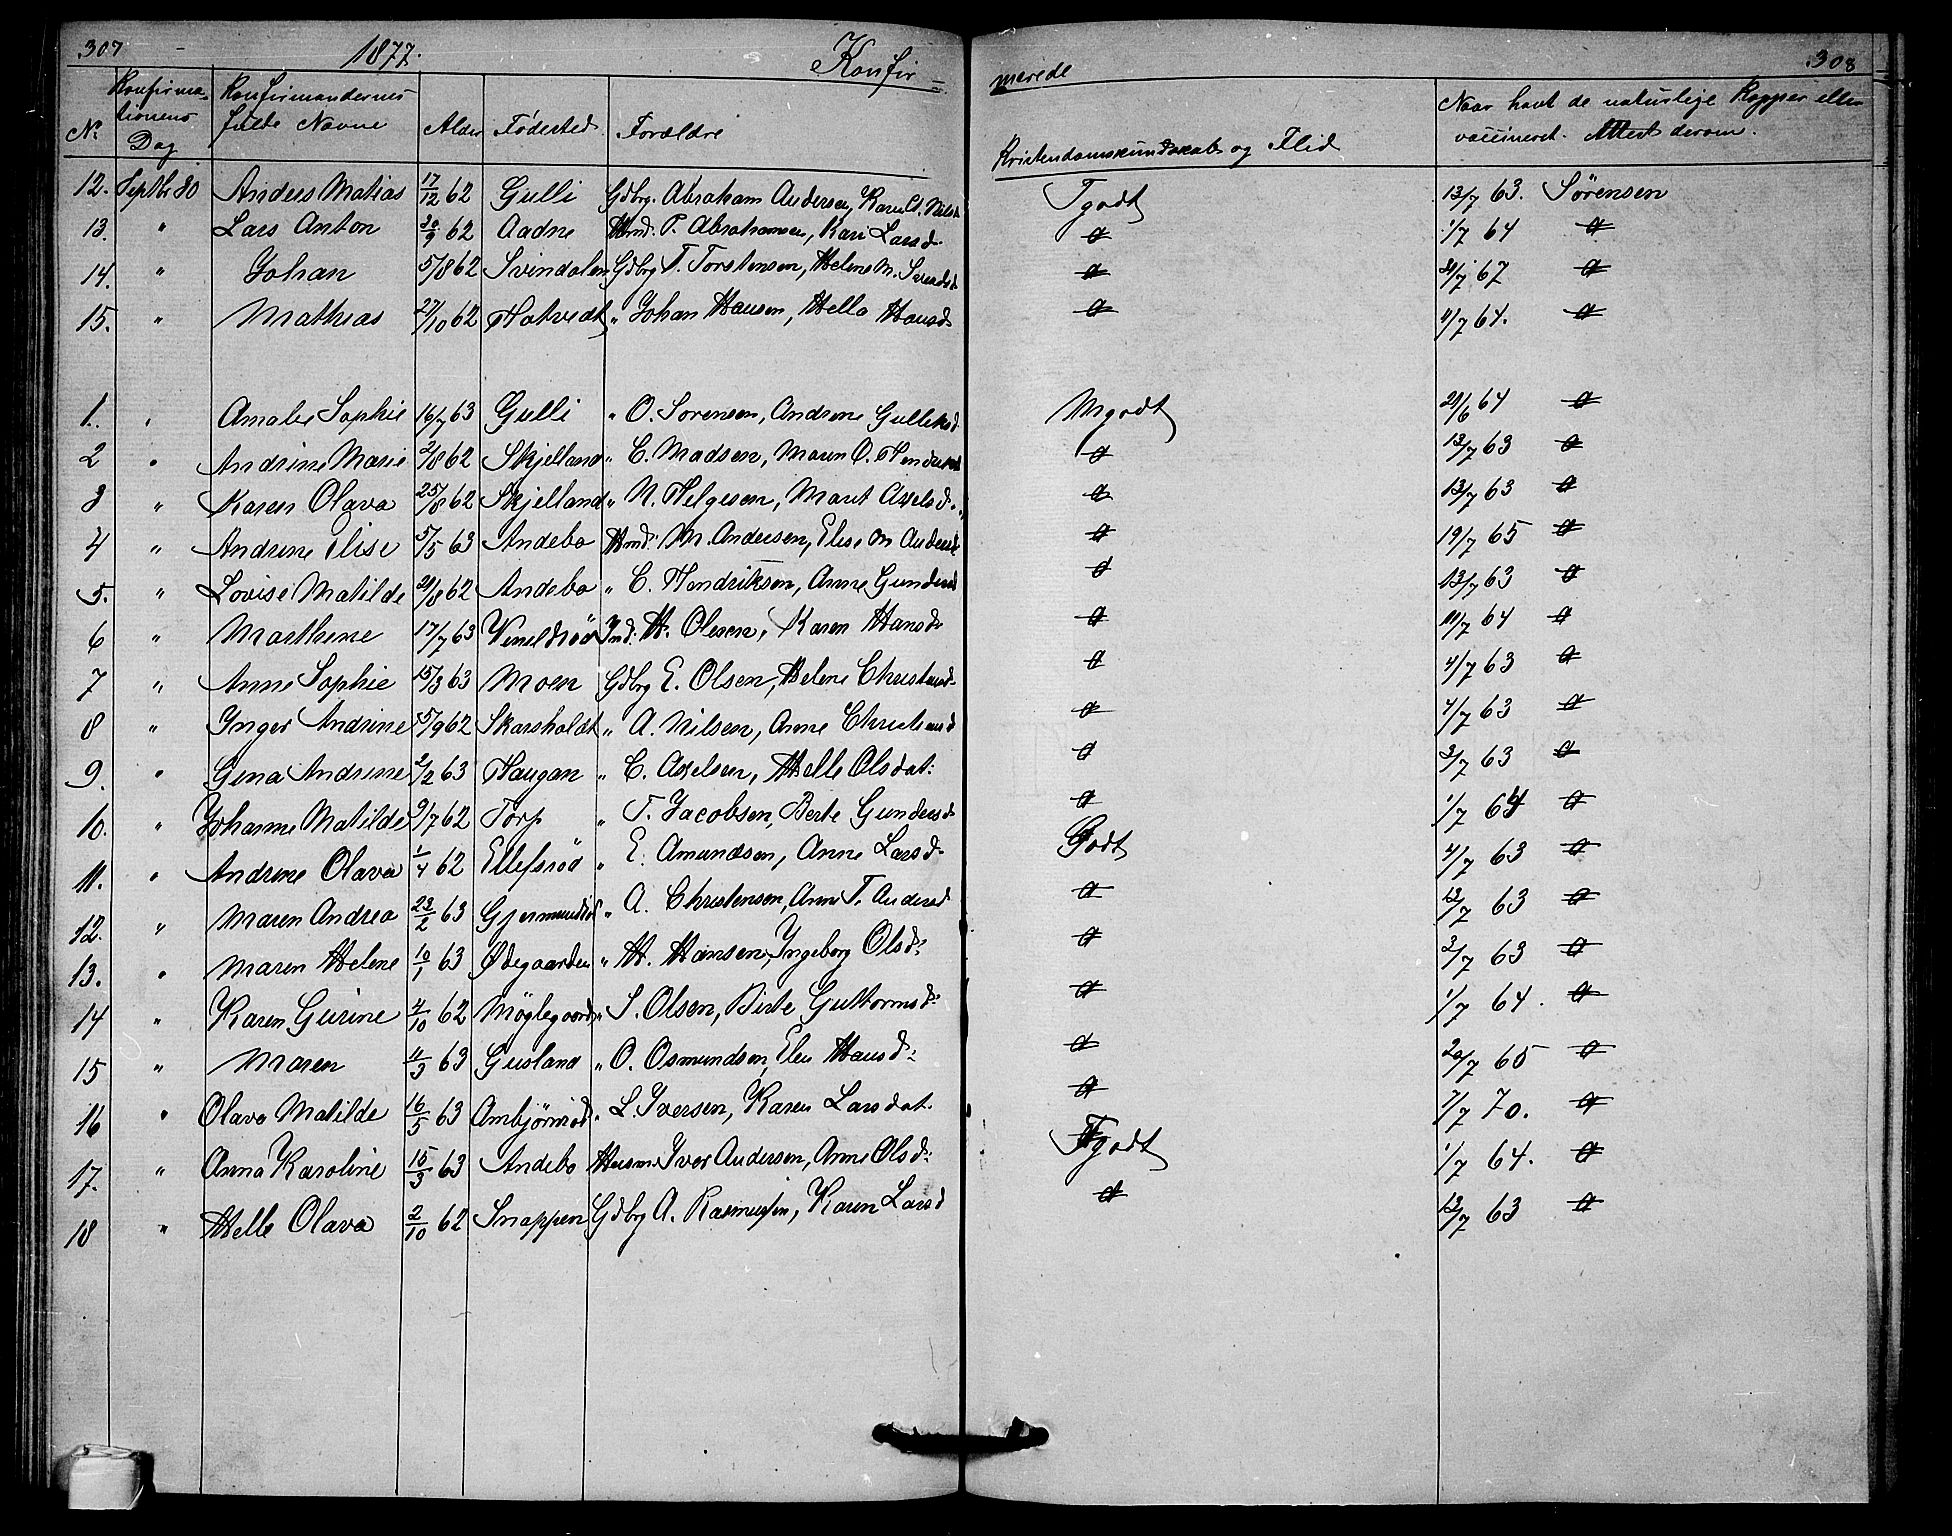 307 1877. Konfir=
merede 308
No Konfirmationens Dag Konfirmandernes fulde Navne Alder Fødested Forældre Kristendomskundskab og Flid Naar havt de naturlige Kopper eller vaccineret. Attest derom.
12. Septbr 30 Anders Matias 17/12 62 Gulli Gdbrg. Abraham Andersen, Tgodt 13/7 63. Sørensen
13. " Lars Anton 9 62 Aadne Hmd. P. Abrahamsen, Kari Larsd. d 1/7 64 d
14. " Johan 5/8 62 Svindalen Gdbrg T. Torstensen, Helene M. d 67 d
15. " Mathias 27/10 62 Hotvedt " Johan Hansen, Helle Hansd. d 4/7 64. d
1. " Amalie Sophie 16/7 63 Gulli " O. Sorensen, Andrine Mgodt 21/6 64 d
2 " Andrine Marie 2/8 62 Skjelland " C. Madsen, Maren O. d 13/7 63 d
3 " Karen Olava 25/8 62 Skjelland " N. Helgesen, Marit Axelsd. d 13/7 63 d
4 " Andrine Elise 5/5 63 Andebo Hmd. M. Andersen, Elise d 19/7 65 d
5. " Lovise Matilde 21/8 62 Andebo " C. Hendriksen, Anne d 13/7 63 d
6 " Marthine 17/7 63 Ind. H. Olesen, Karen Hansd. d 11/7 64 d
7 " Anne Sophie 15/3 63 Moen Gdbrg E. Olsen, Helene d 4/7 63 d
8 " Inger Andrine 15/9 62 Skarsholdt " A. Nilsen, Anne d 4/7 63 d
9. " Gina Andrine 2/2 63 Haugan " C. Axelsen, Helle Olsdat: d 3/7 63 d
10. " Johanne Matilde 9/7 62 Torp " T. Jacobsen, Berte Gundersd. d 1/7 64 d
11. " Andrine Olava 1/4 62 Ellefsrød " E. Amundsen, Anne Larsd. Godt 4/7 63 d
12. " Maren Andrea 23/2 63 " A. Christensen, Anne T. d 13/7 63 d
13. " Maren Helene 10/1 63 Ødegaarden " H. Hansen, Ingeborg Olsd: d 3/7 63 d
14 " Karen Gurine 4/10 62 Møglegaard " S. Olsen, Birte Guttormsd: d 1/7 64. d
15 " Maren 4/3 63 Gusland " O. Osmundsen, Hansd: d 20/7 65 d
16 " Olava Matilde 16/5 63 Ambjørnrød " L. Iversen, Karen Larsdat. d 7/7 70. d
17. " Anna Karoline 15/3 63 Andebo Iver Andersen, Anne Olsd: Tgodt 1/7 64. d
18 " Helle Olava 2/10 62 Snappen Gdbrg A. Rasmussen, Karen Larsd d 13/7 63 d